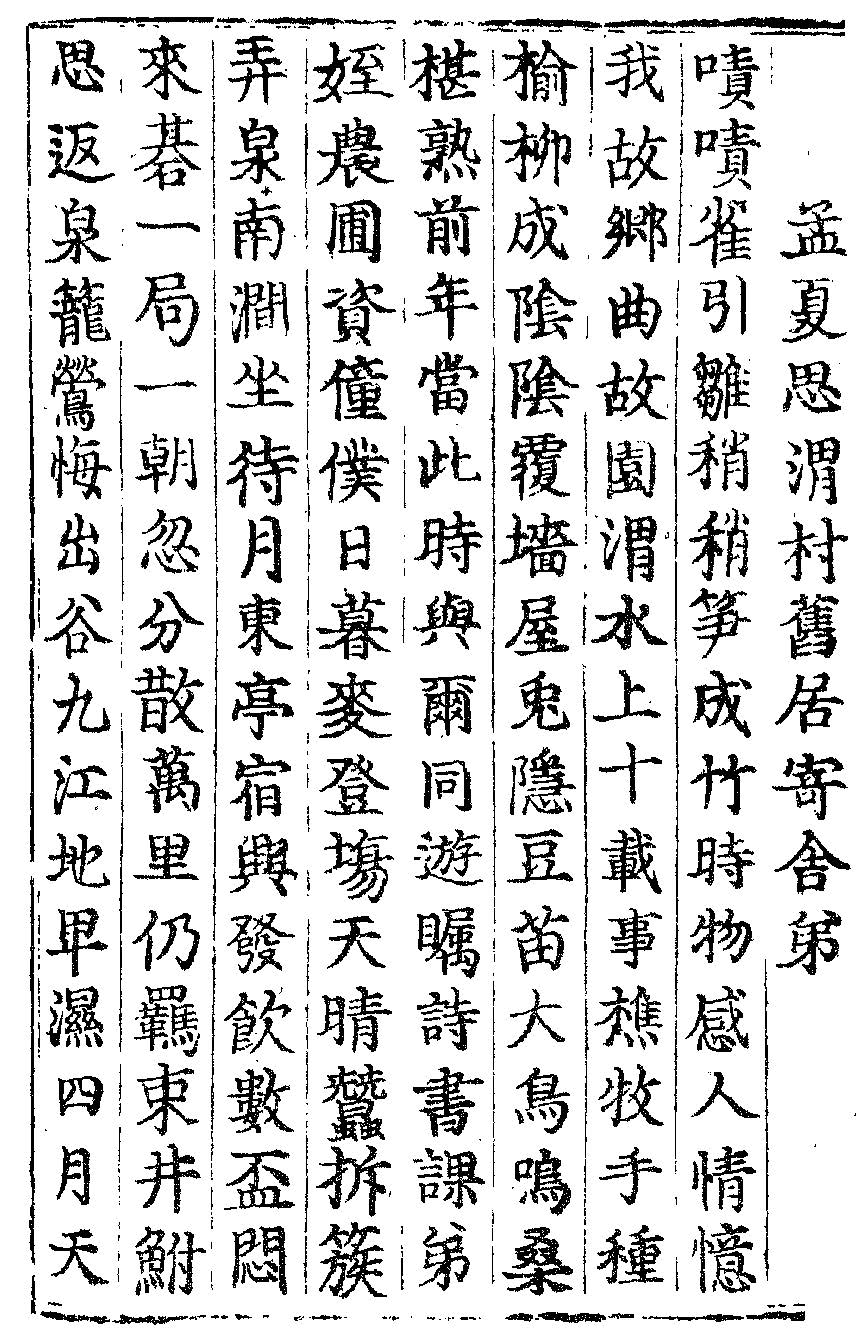 孟夏思渭村舊居寄舍弟
嘖嘖雀引雛稍稍筝成竹時物感人情憶
我故鄉曲故園渭水上十載事樵牧手種
榆柳成陰陰陰覆墻屋兎隱豆苗大鳥鳴桑
椹熟前年當此時與爾同遊矚詩書課弟
姪農圃資僮僕日暮麥登場天晴蠶拆簇
弄泉南澗坐待月東亭宿興發飲數盃悶
來碁一局一朝忽分散萬里仍羈束井鮒
思返泉籠鶯悔出谷九江地卑濕四月天